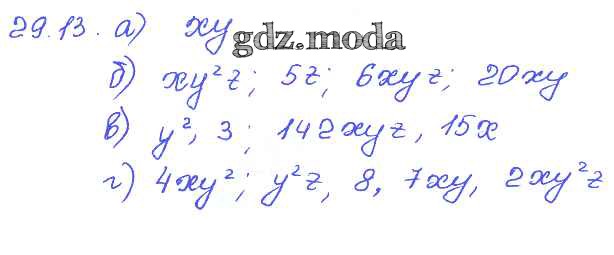 29.13. а) xy gdz.moda
б) xy²z; 5z; 6xyz; 20xy
в) y², 3; 142xyz, 15x
г) 4xy²; y²z, 8, 7xy, 2xy²z